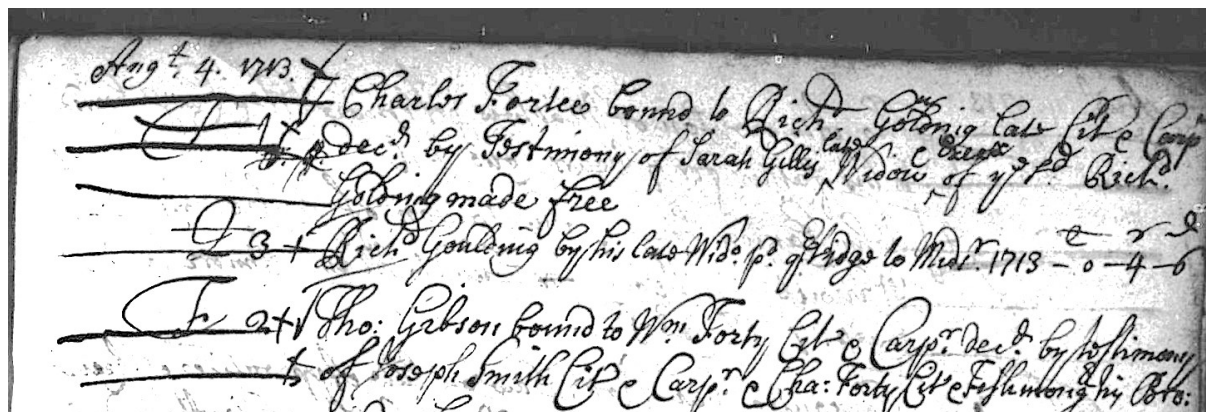 Augt. 4. 1713.
Charles Fortee bound to Richd Golding late Cit & Carpr
decd. by Testimony of Sarah Gillis late Widow & Exerx of ye sd. Richd.
Golding made free
G 3 + Richd Goulding by his late Wido. pd. qtridge to Midsr. 1713 - 0 - 4 - 6
F 2 + Tho: Gibson bound to Wm. Forty Cit & Carpr. decd. by testimony
of Joseph Smith Cit & Carpr. & Cha: Forty Cit &